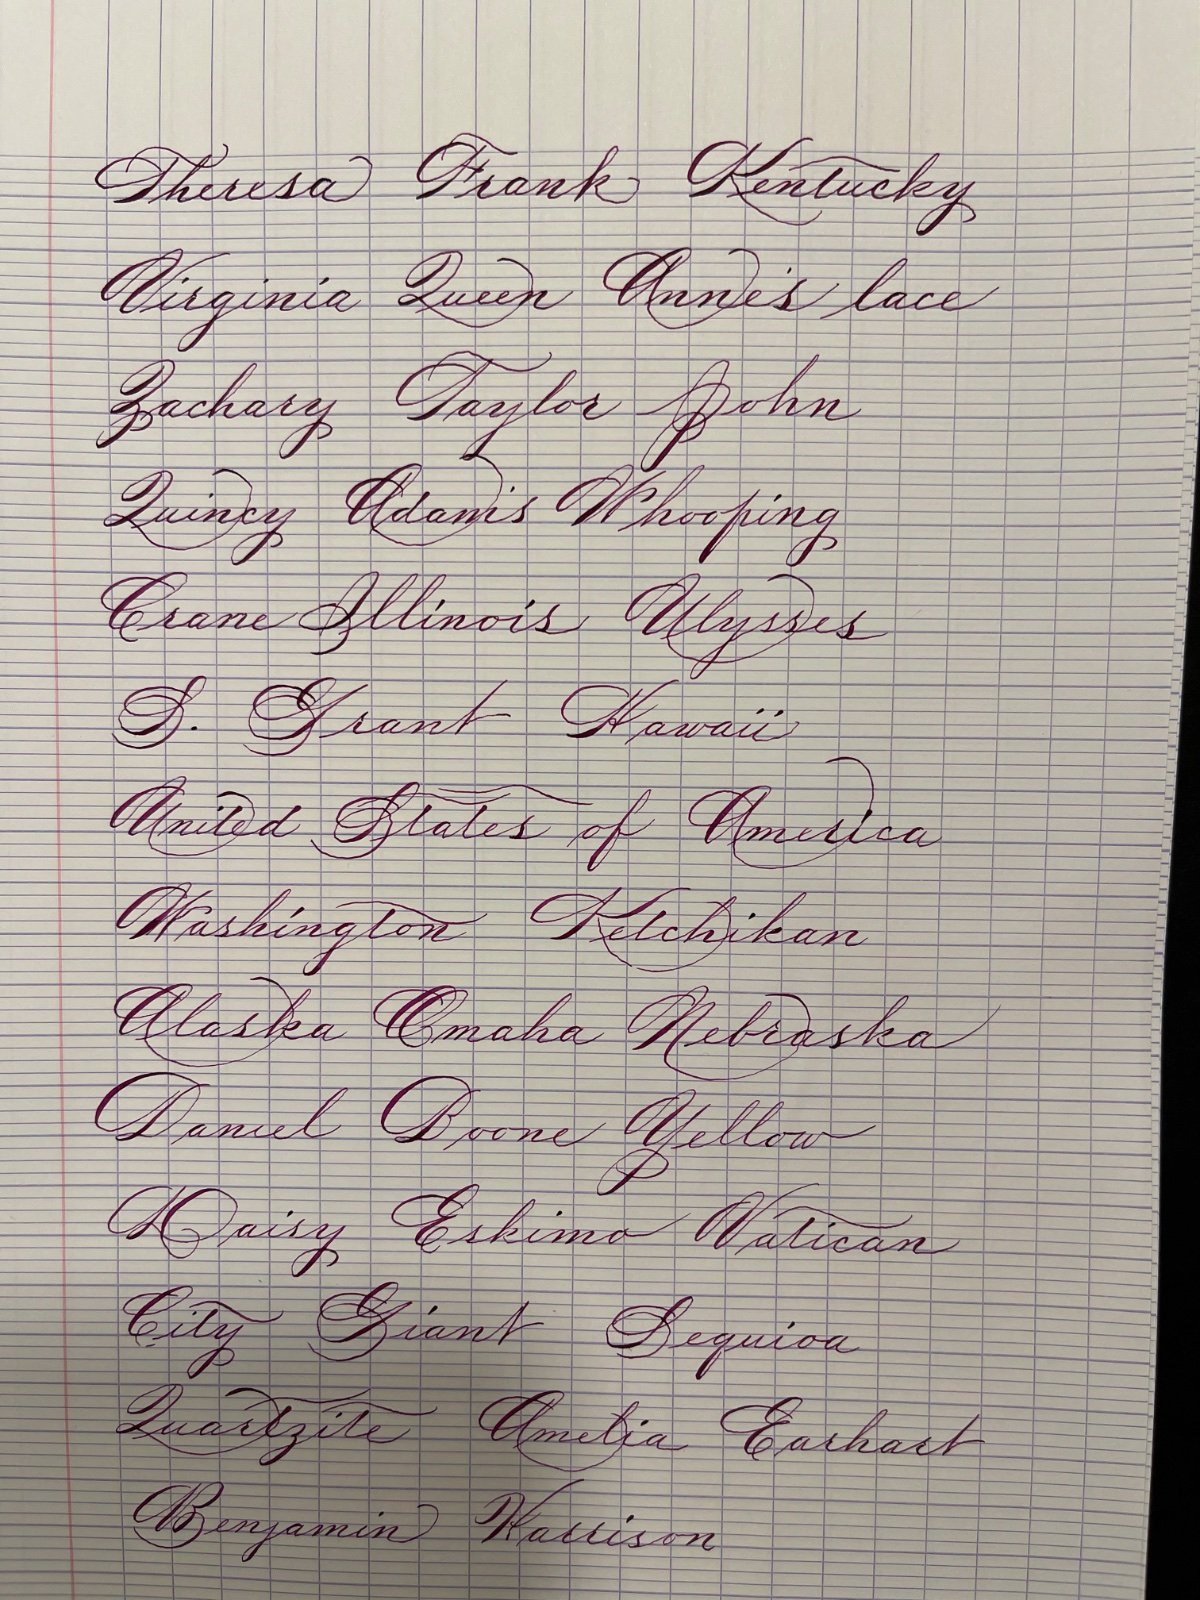 Theresa Frank Kentucky
Virginia Queen Anne's lace
Zachary Taylor John
Quincy Adams Whooping
Crane Illinois Ulysses
S. Grant Hawaii
United States of America
Washington Ketchikan
Alaska Omaha Nebraska
Daniel Boone Yellow
Daisy Eskimo Vatican
City Giant Sequioa
Quartzite Amelia Earhart
Benjamin Harrison